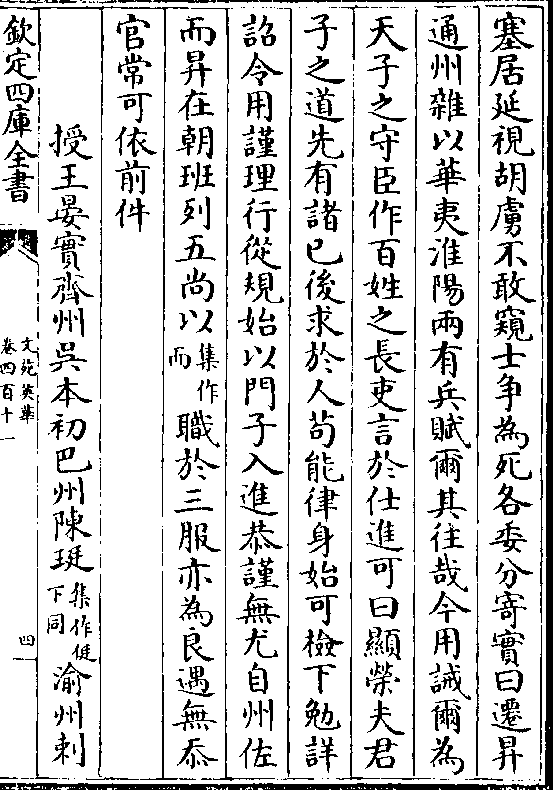 塞居延視胡虜不敢窺士爭為死各委分寄實曰遷昇
通州雜以華夷淮陽兩有兵賦爾其往哉今用誡爾為
天子之守臣作百姓之長吏言於仕進可曰顯榮夫君
子之道先有諸已後求於人苟能律身始可檢下勉詳
詔令用謹理行從規始以門子入進恭謹無尤自州佐
而昇在朝班列五尚以集作而職於三服亦為良遇無忝
官常可依前件
授王晏實齊州吳本初巴州陳珽集作侹下同渝州刺
欽定四庫全書
文苑英華
卷四百十一
四